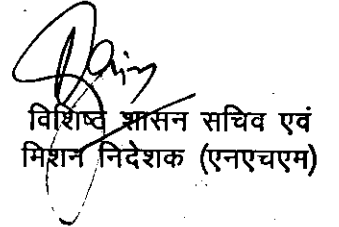 विशिष्ठ शासन सचिव एवं
मिशन निदेशक (एनएचएम)